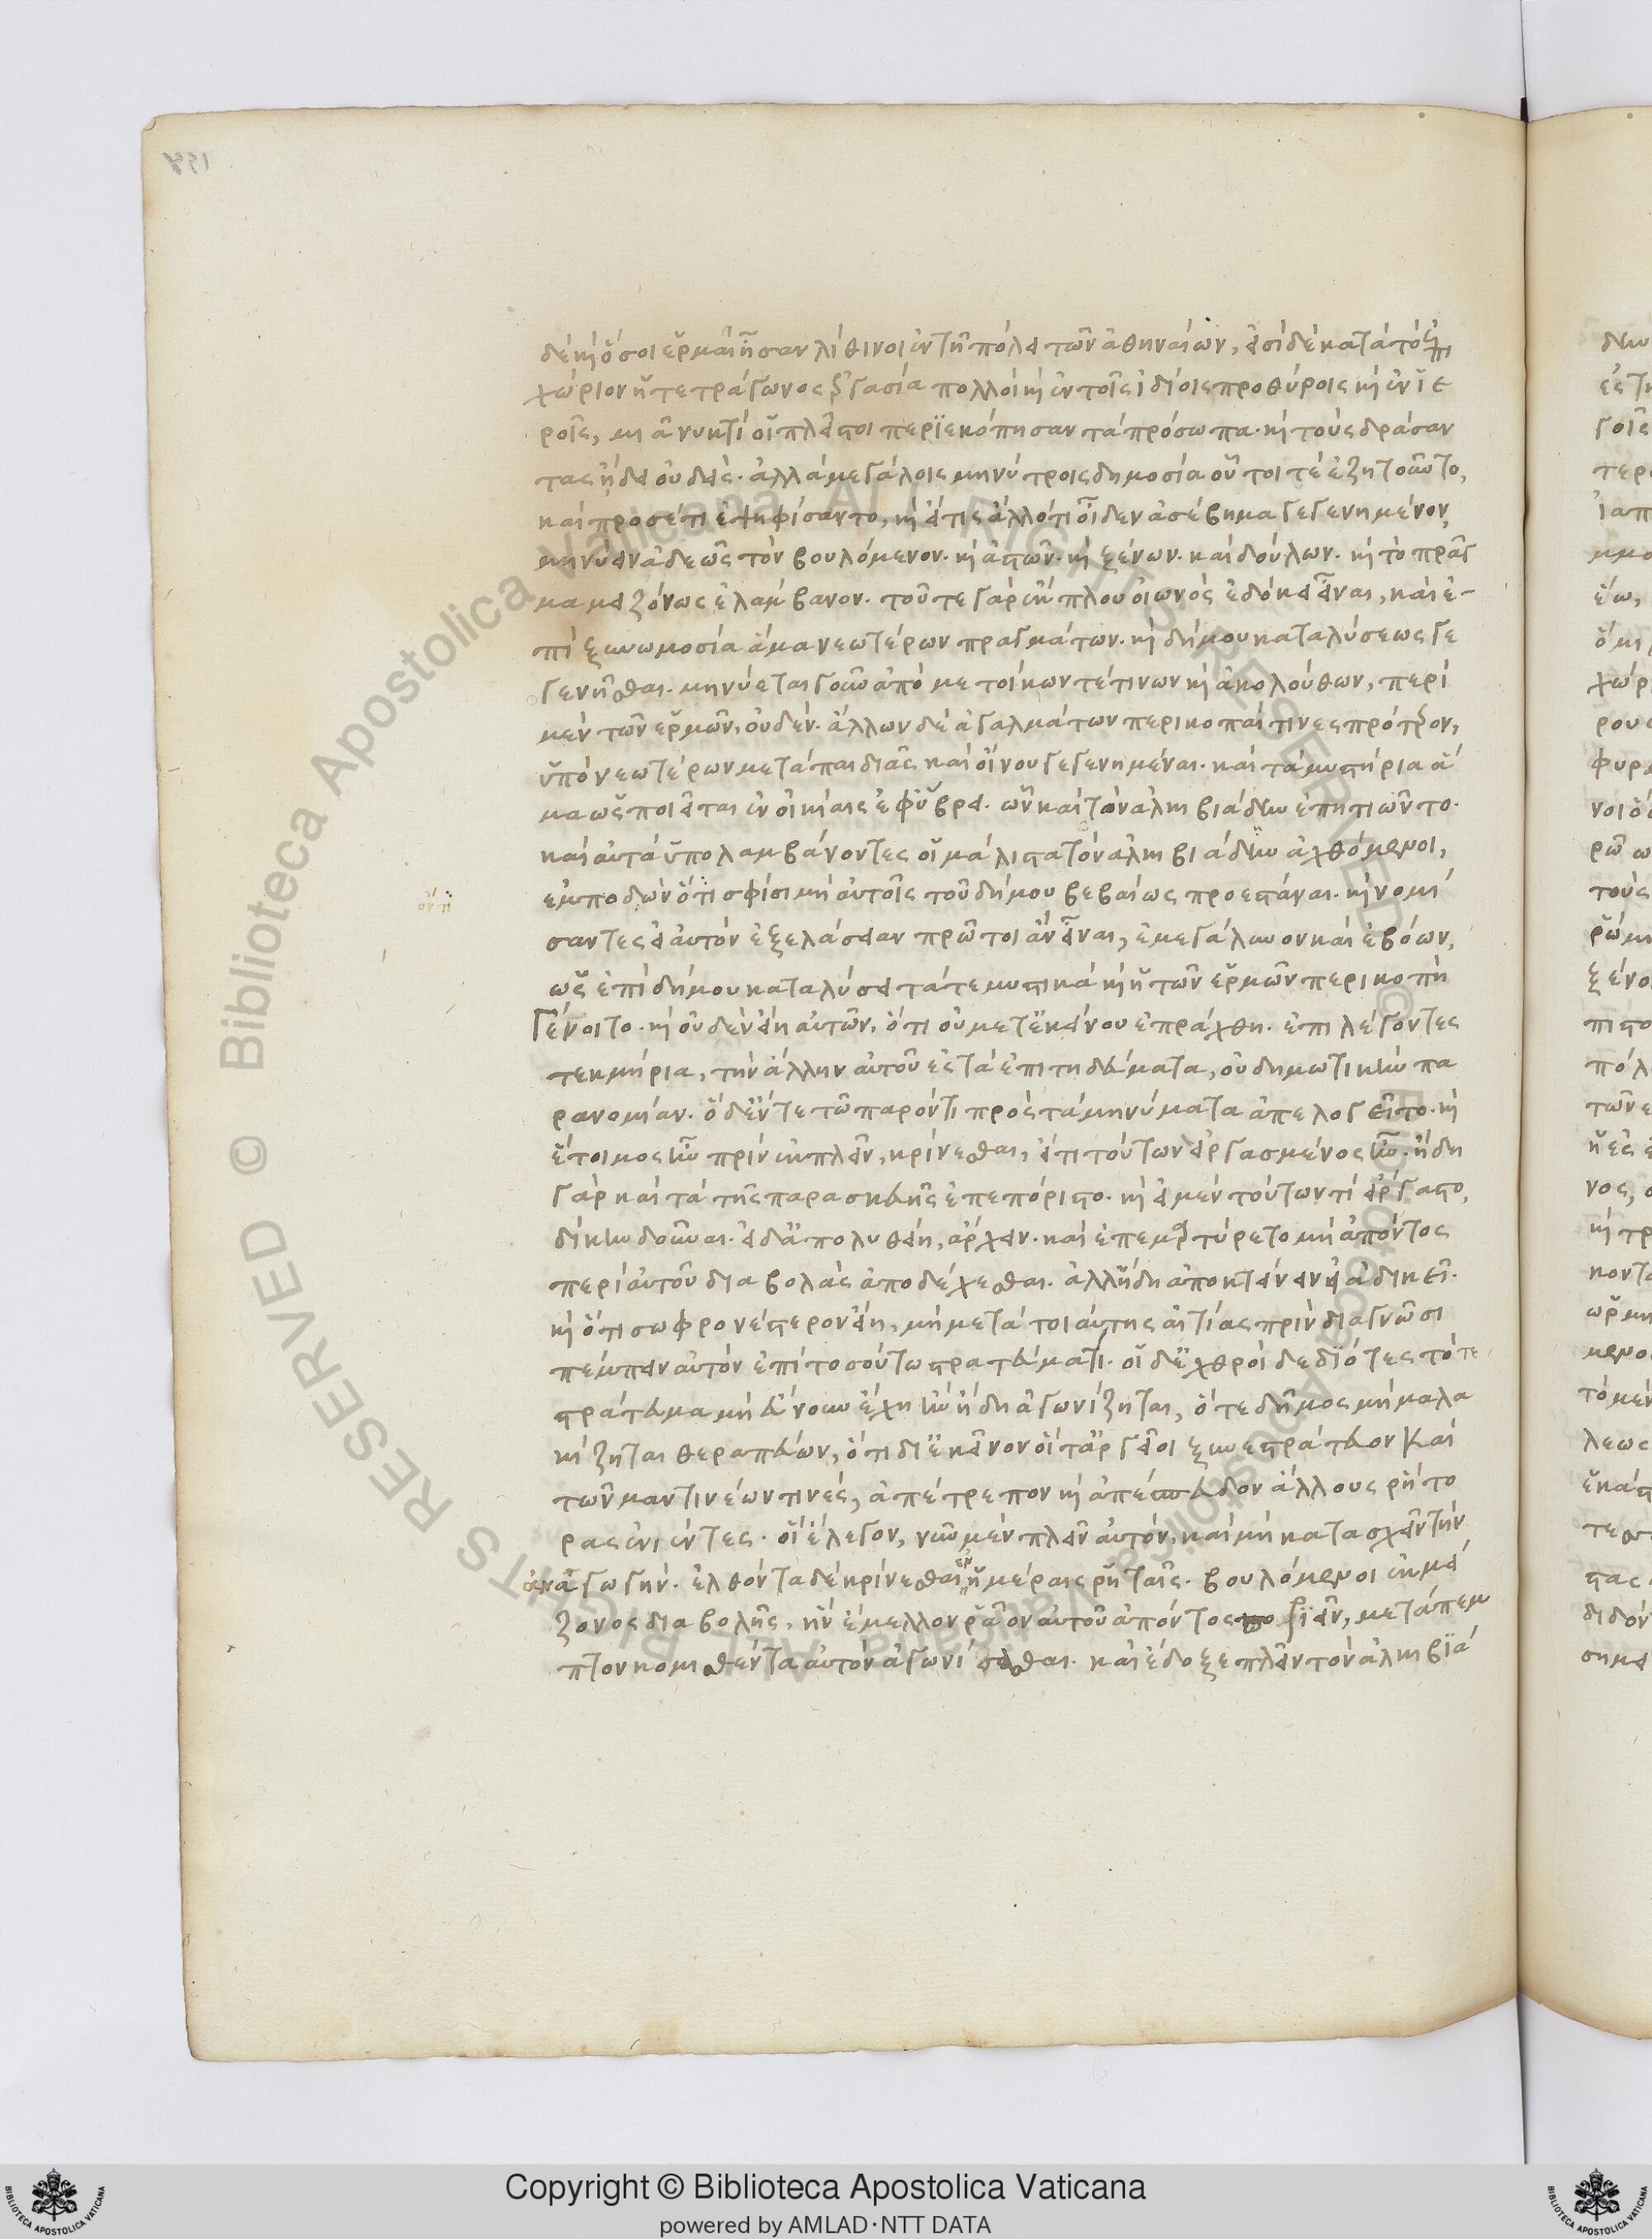 δὲ καὶ ὅσοι ἑρμαῖ ἦσαν λίθινοι ἐν τῇ πόλει τῶν ἀθηναίων, εἰσὶ δὲ κατὰ τὸ ἐπι
χώριον ἡ τετράγωνος ἐργασία πολλοὶ καὶ ἐν τοῖς ἰδίοις προθύροις καὶ ἐν ἱε
ροῖς, μιᾷ νυκτὶ οἱ πλεῖστοι περιεκόπησαν τὰ πρόσωπα. καὶ τοὺς δράσαν
τας ᾔδει οὐδείς. ἀλλὰ μεγάλοις μηνύτροις δημοσίᾳ οὗτοί τε ἐζητοῦντο,
καὶ προσέτι ἐψηφίσαντο, καὶ εἴ τις ἄλλό τι οἶδεν ἀσέβημα γεγενημένον,
μηνύειν ἀδεῶς τὸν βουλόμενον. καὶ ἀστῶν. καὶ ξένων. καὶ δούλων. καὶ τὸ πρᾶγ
μα μειζόνως ἐλάμβανον. τοῦ τε γὰρ ἔκπλου οἰωνὸς ἐδόκει εἶναι, καὶ ἐ-
πὶ ξυνωμοσίᾳ ἅμα νεωτέρων πραγμάτων. καὶ δήμου καταλύσεως γε
γενῆσθαι. μηνύεται γοῦν ἀπὸ μετοίκων τέ τινων καὶ ἀκολούθων, περὶ
μὲν τῶν ἑρμῶν, οὐδέν. ἄλλων δὲ ἀγαλμάτων περικοπαί τινες πρότερον,
ὑπὸ νεωτέρων μετὰ παιδιᾶς καὶ οἴνου γεγενημέναι. καὶ τὰ μυστήρια ἅ
μα ὡς ποιεῖται ἐν οἰκίαις ἐφ' ὕβρει. ὧν καὶ τὸν ἀλκιβιάδην ἐπῃτιῶντο.
καὶ αὐτὰ ὑπολαμβάνοντες οἱ μάλιστα τὸν ἀλκιβιάδην ἀχθόμενοι,
ἐμποδὼν ὄντι σφίσι μὴ αὐτοῖς τοῦ δήμου βεβαίως προεστάναι. καὶ νομί
σαντες εἰ αὐτὸν ἐξελάσειαν πρῶτοι ἂν εἶναι, ἐμεγάλυνον καὶ ἐβόων,
ὡς ἐπὶ δήμου καταλύσει τά τε μυστικὰ καὶ ἡ τῶν ἑρμῶν περικοπὴ
Γένοιτο. καὶ οὐδὲν εἴη αὐτῶν, ὅτι οὐ μετ' ἐκείνου ἐπράχθη. ἐπιλέγοντες
τεκμήρια, τὴν ἄλλην αὐτοῦ ἐς τὰ ἐπιτηδεύματα, οὐ δημωτικὴν πα
ρανομίαν. ὁ δ' ἔν τε τῷ παρόντι πρὸς τὰ μηνύματα ἀπελογεῖτο. καὶ
ἕτοιμος ἦν πρὶν ἐκπλεῖν, κρίνεσθαι, εἴ τι τούτων εἰργασμένος ἦν. ἤδη
γὰρ καὶ τὰ τῆς παρασκευῆς ἐπεπόριστο. καὶ εἰ μὲν τούτων τί εἴργαστο,
δίκην δοῦναι. εἰ δ' ἀπολυθείη, ἄρχειν. καὶ ἐπεμαρτύρετο μὴ ἀπόντος
περὶ αὐτοῦ διαβολὰς ἀποδέχεσθαι. ἀλλ' ἤδη ἀποκτείνειν εἰ ἀδικεῖ.
καὶ ὅτι σωφρονέστερον εἴη, μὴ μετὰ τοιαύτης αἰτίας πρὶν διαγνῶσι
πέμπειν αὐτὸν ἐπὶ τοσούτῳ στρατεύματι. οἱ δ' ἐχθροὶ δεδιότες τό τε
στράτευμα μὴ εὔνουν ἔχῃ ἢν ἤδη ἀγωνίζηται, ὅ τε δῆμος μὴ μαλα
κίζηται θεραπεύων, ὅτι δι' ἐκεῖνον οἵ τ' ἀργεῖοι ξυνεστράτευον καὶ
τῶν μαντινέων τινές, ἀπέτρεπον καὶ ἀπέσπευδον ἄλλους ῥήτο
ρας ἐνιέντες. οἳ ἔλεγον, νῦν μὲν πλεῖν αὐτόν, καὶ μὴ κατασχεῖν τὴν
ἀναγωγήν. ἐλθόντα δὲ κρίνεσθαι ἐν ἡμέραις ῥηταῖς. βουλόμενοι ἐκ μεί
ζονος διαβολῆς, ἣν ἔμελλον ῥᾷον αὐτοῦ ἀπόντος ποριεῖν, μετάπεμ
πτον κομισθέντα αὐτὸν ἀγωνίσασθαι. καὶ ἔδοξε πλεῖν τὸν ἀλκιβιά
Biblioteca Apostolica Vaticana ALL RIGHTS RESERVED ©
Copyright © Biblioteca Apostolica Vaticana
powered by AMLAD·NTT DATA